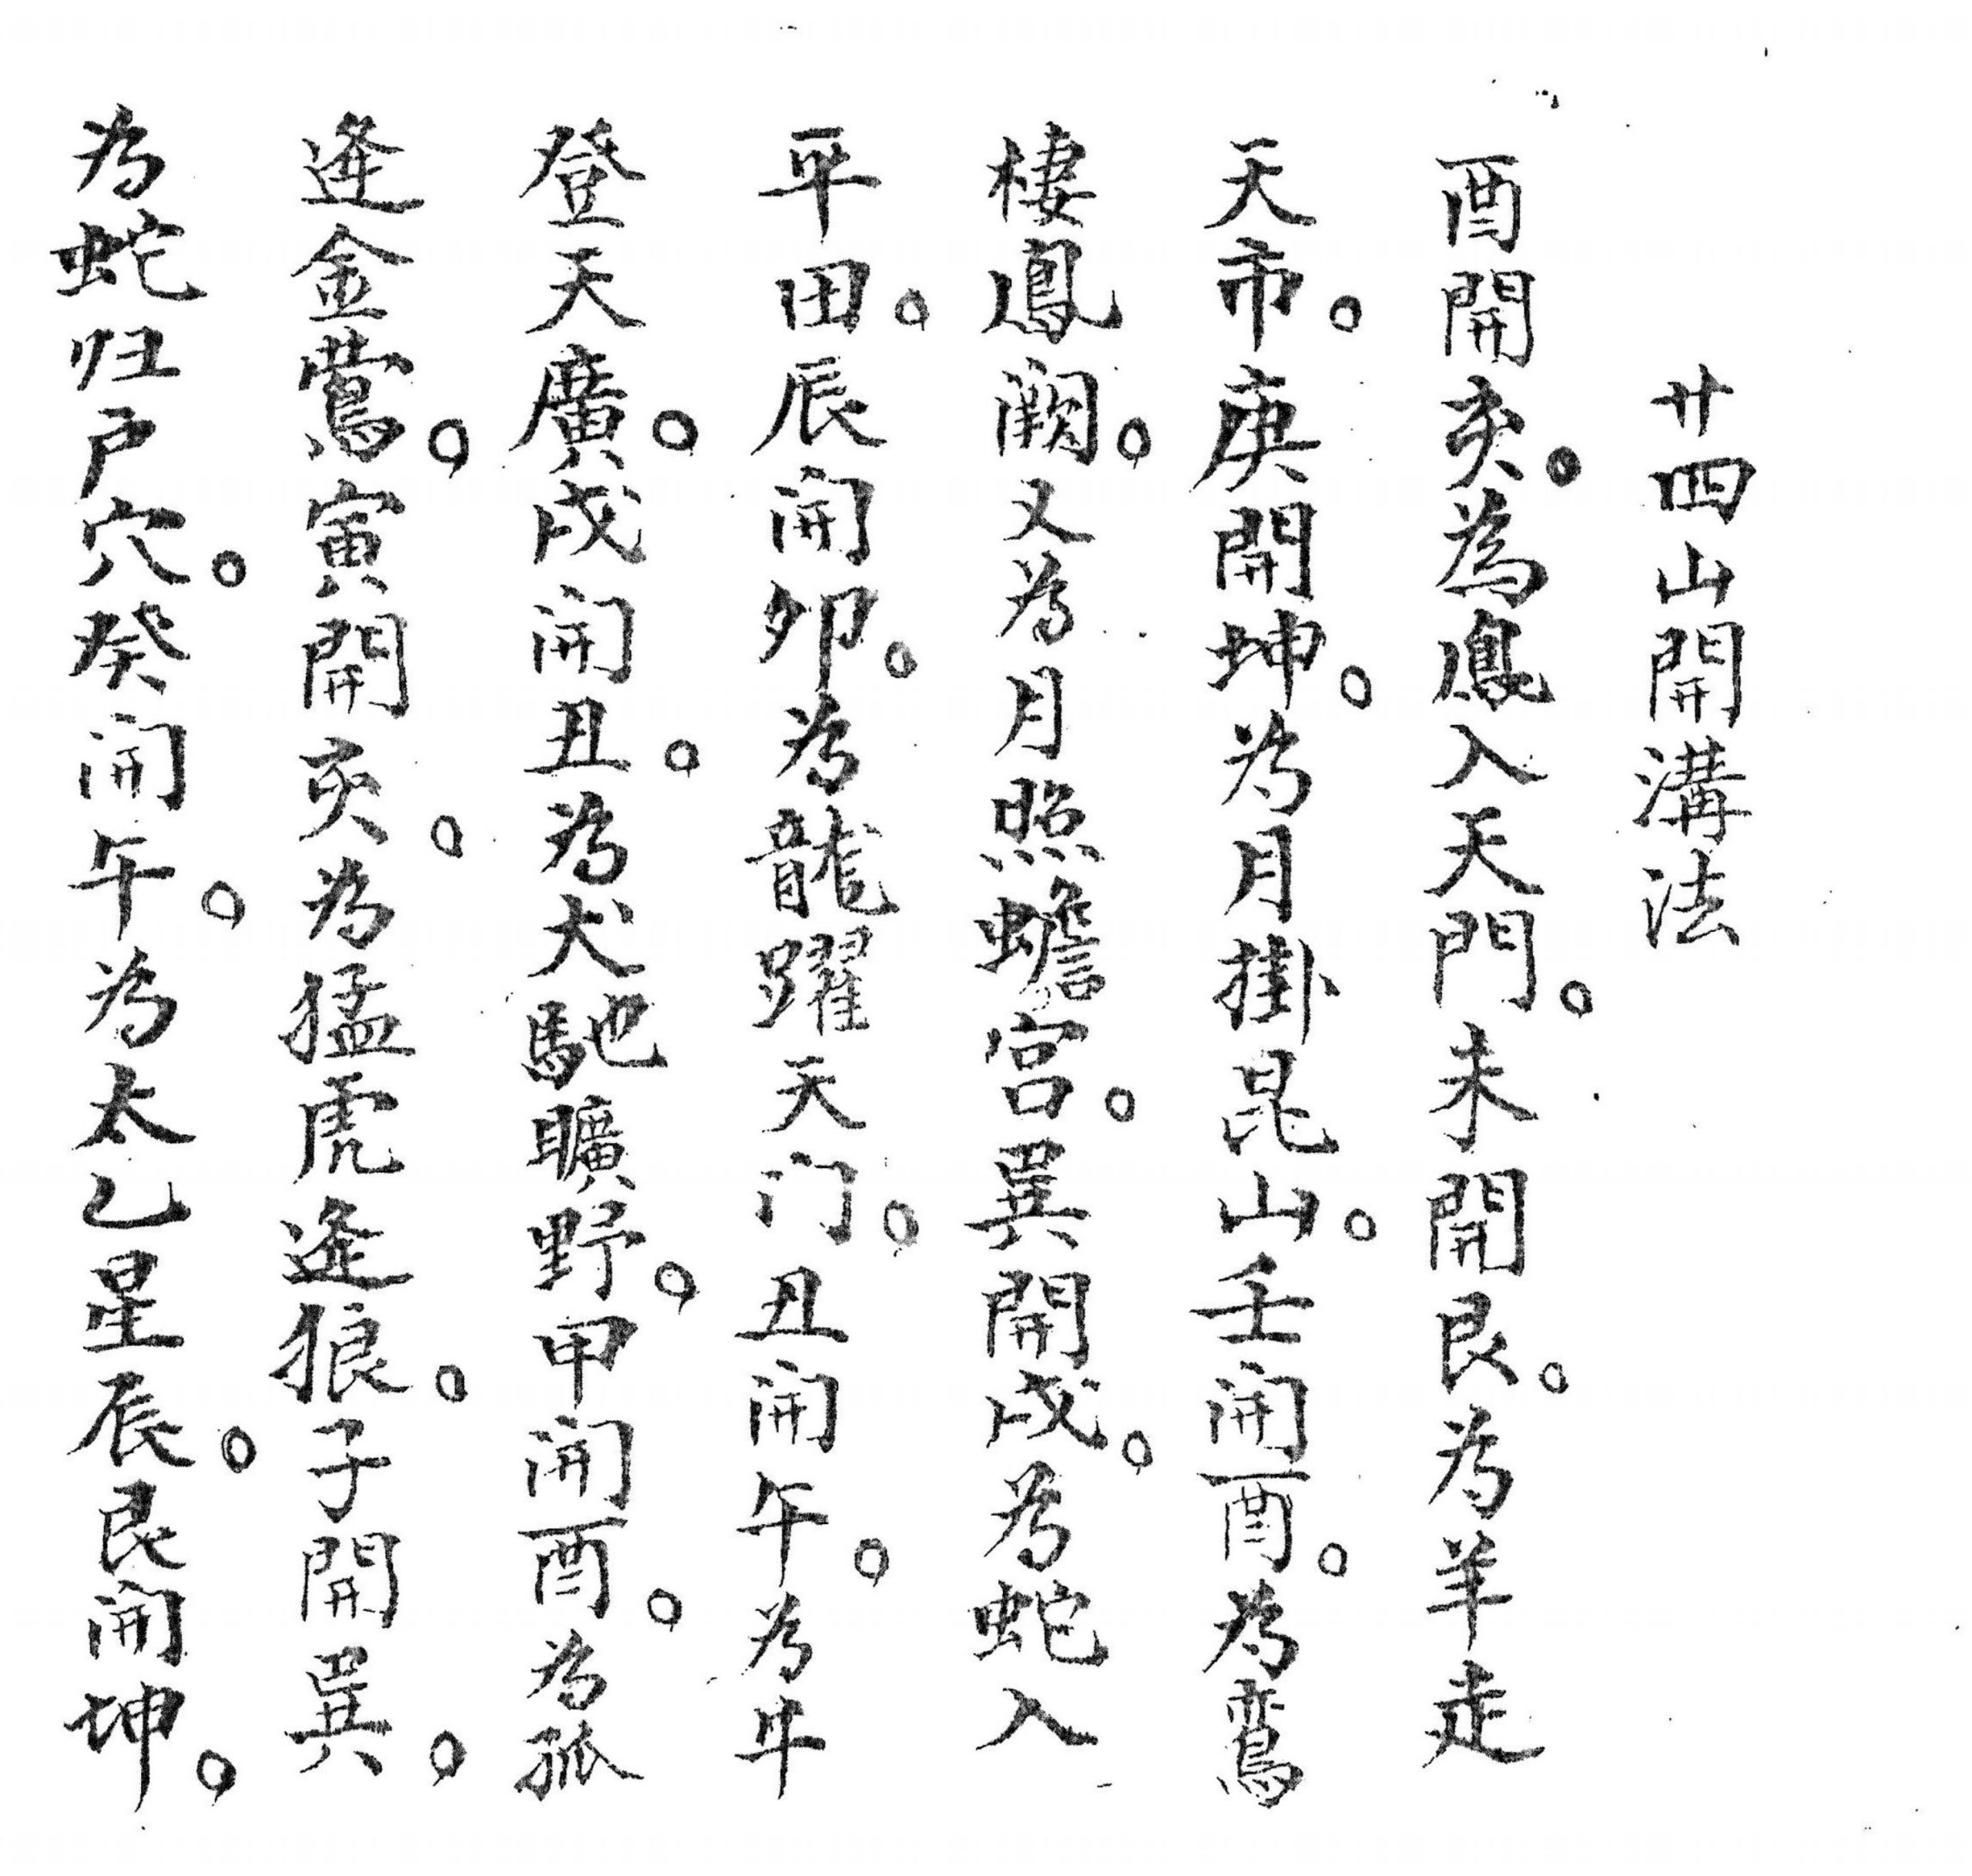 廿四山開溝法
酉開亥。為鳳入天門。未開艮。为羊走
天市。庚開坤。为月掛昆山。壬開酉。为鸞
棲鳳阙。又为月照蟾宫。巽開戌。为蛇入
平田。辰開卯。为龍躍天门。丑開午。为牛
登天廣。戌開丑。为犬馳曠野。甲開酉。为孤
逢金鶯。寅開亥。为猛虎逢狼。子開巽。
为蛇归户穴。癸開午。为太乙星辰。艮開坤。